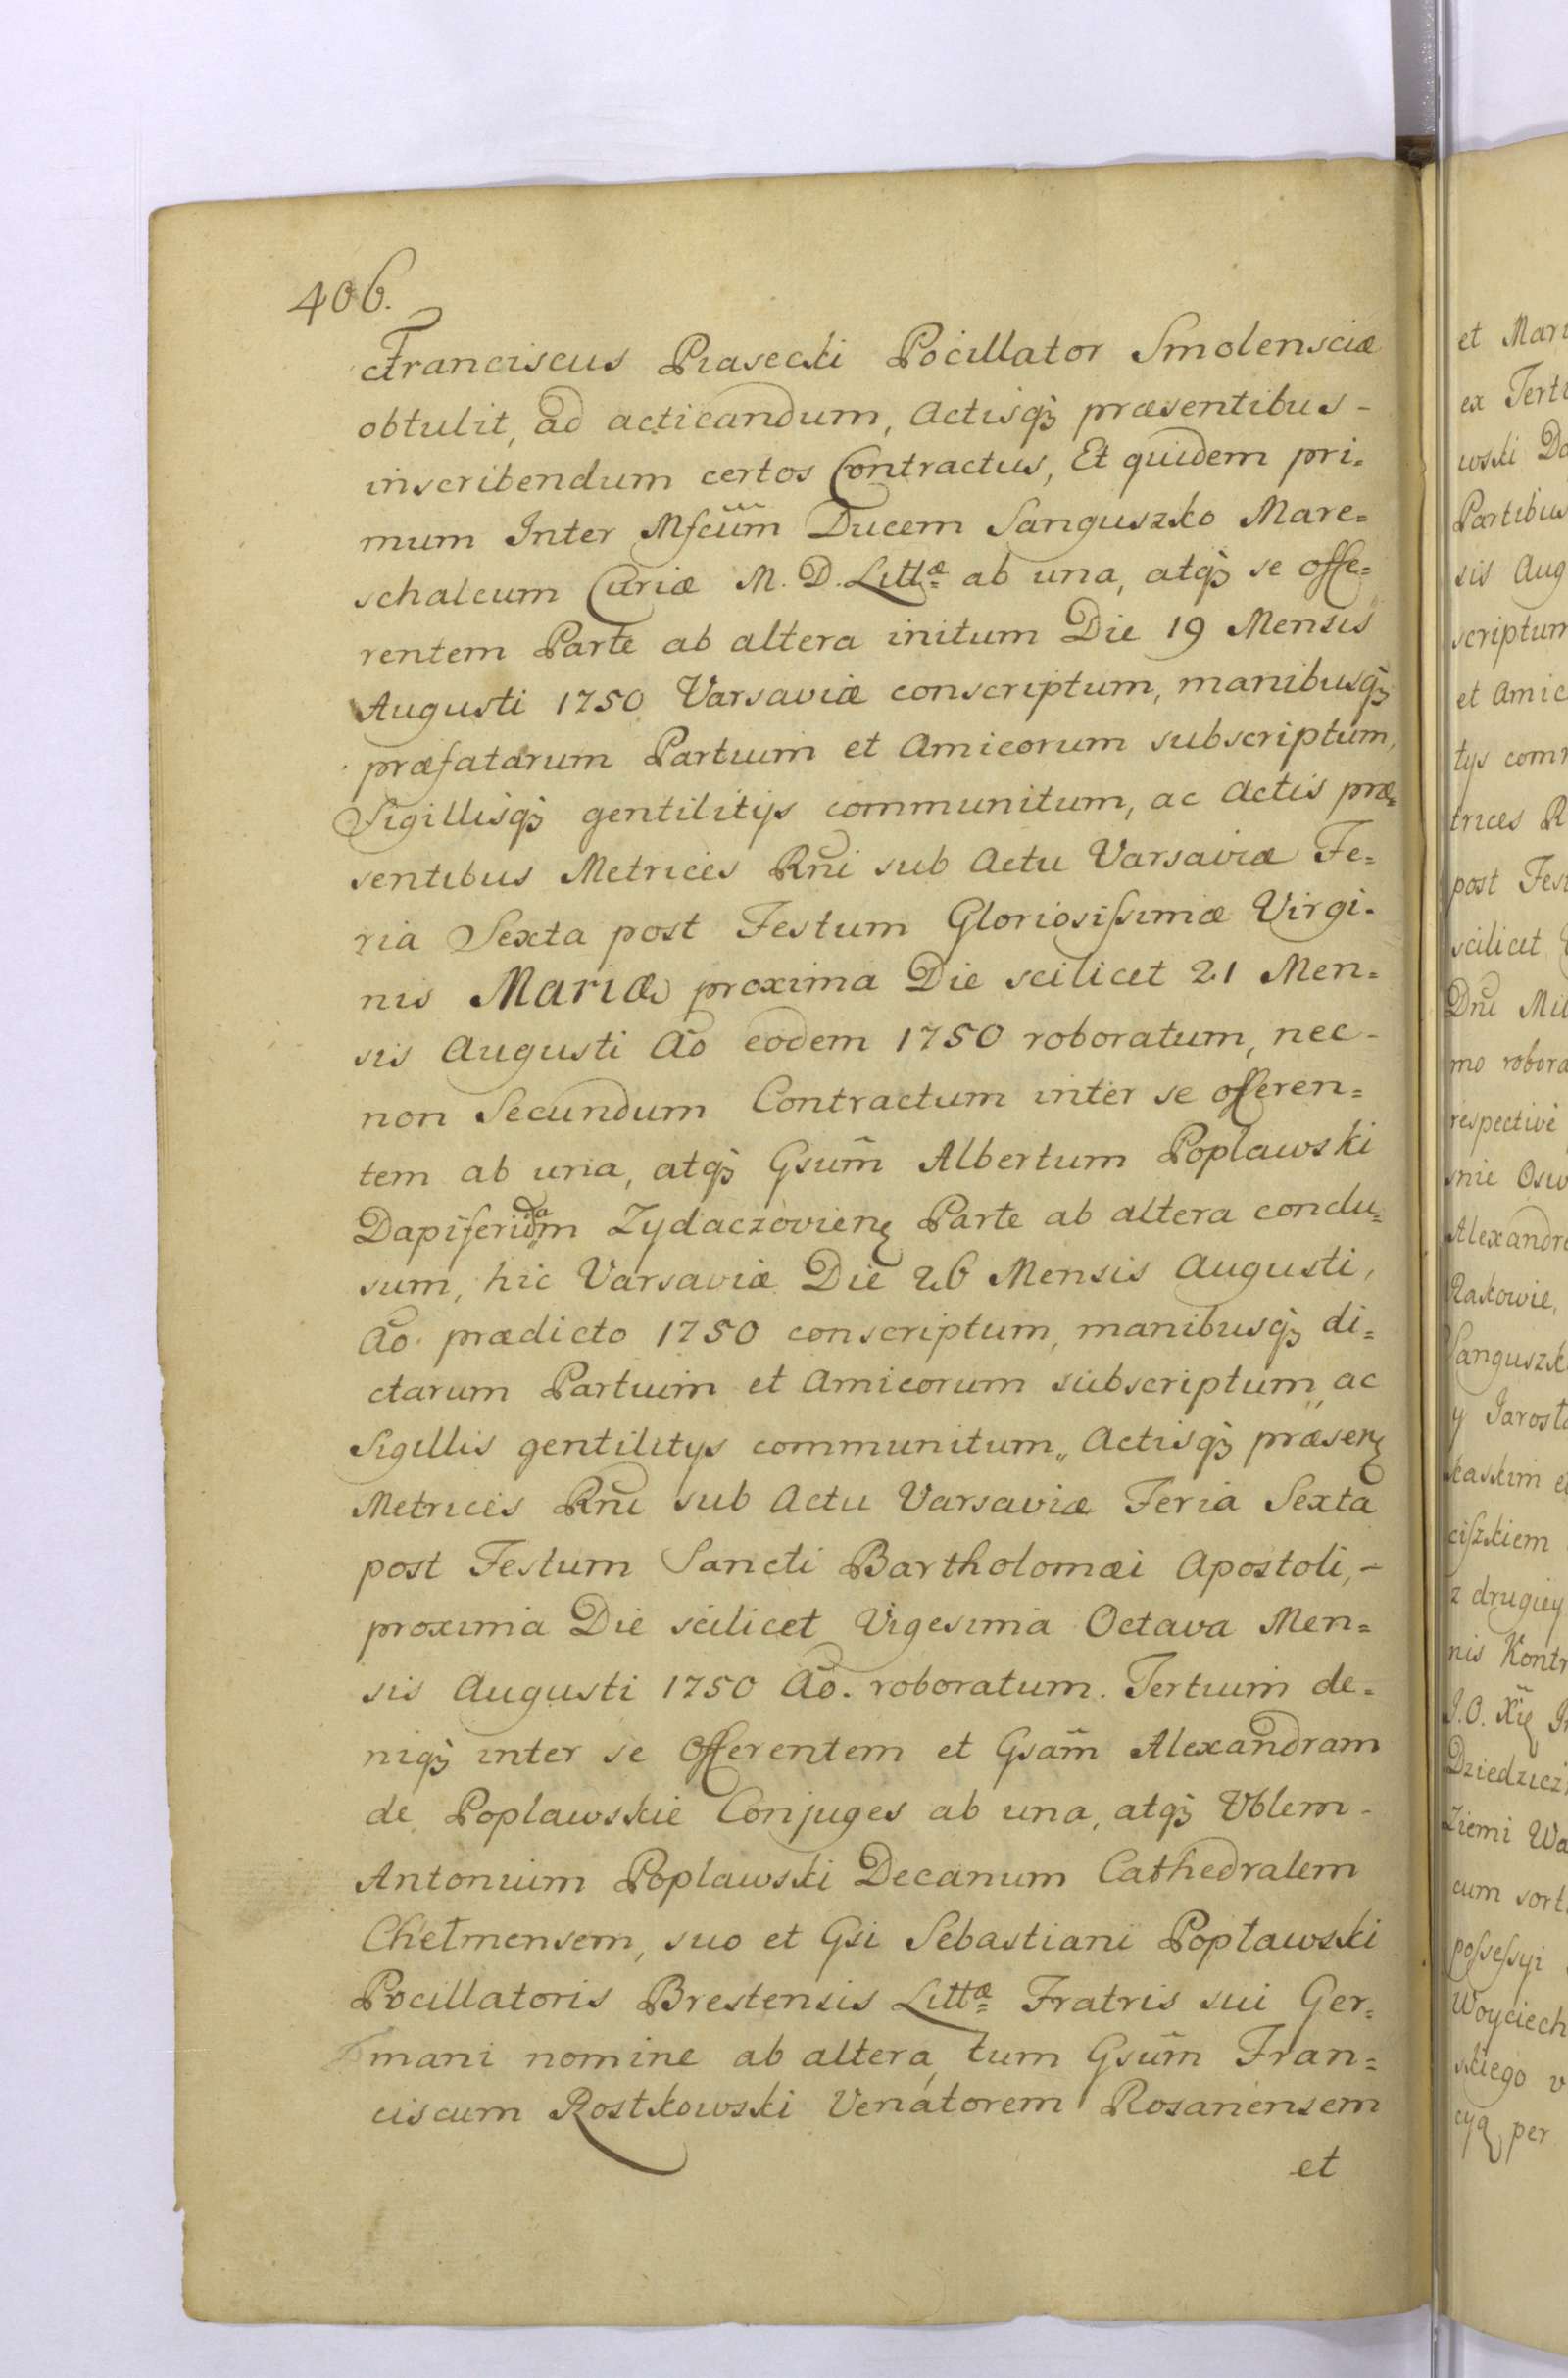 406.
Franciscus Piasecki Pocillator Smolensciæ
obtulit, ad acticandum, Actisq; præsentibus -
inscribendum certos Contractus, Et quidem pri=
mum Inter Mfcũm Ducem Sanguszko Mare=
schalcum Curiæ M. D. Littæ ab una, atq; se offe=
rentem Parte ab altera initum Die 19 Mensis
Augusti 1750 Varsaviæ conscriptum, manibusq;
præfatarum Partium et Amicorum subscriptum,
Sigillisq; gentilitijs communitum, ac Actis præ=
sentibus Metrices Rñi sub Actu Varsaviæ Fe=
ria Sexta post Festum Gloriosissimæ Virgi=
nis Mariæ proxima Die scilicet 21 Men=
sis Augusti Aõ eodem 1750 roboratum, nec-
non Secundum Contractum inter se offeren=
tem ab una, atq; Gsum̃ Albertum Poplawski
Dapiferidam Zydaczovien Parte ab altera conclu=
sum, hic Varsaviæ Die 26 Mensis Augusti,
Aõ. prædicto 1750 conscriptum, manibusq; di=
ctarum Partium et Amicorum subscriptum, ac
Sigillis gentilitijs communitum, Actisq; præsen
Metrices Rñi sub Actu Varsaviæ Feria Sexta
post Festum Sancti Bartholomæi Apostoli, -
proxima Die scilicet Vigesima Octava Men=
sis Augusti 1750 Aõ. roboratum. Tertium de=
niq; inter se Offerentem et Gsam̃ Alexandram
de Poplawskie Conjuges ab una, atq; Vblem -
Antonium Poplawski Decanum Cathedralem
Chełmensem, suo et Gsi Sebastiani Popławski
Pocillatoris Brestensis Littæ Fratris sui Ger=
mani nomine ab altera, tum Gsum̃ Fran=
ciscum Rostkowski Venatorem Rosanensem
et
et
ex
wski
Partibus
sis Aug
scriptum
et Amic
tijs
trices R
post
scilicet
Dñi
mo
respective
Alexandr
Rakowie,
Sanguszk
y
z drugiey
nis Kontr
J.O.
Ziemi
cum
possessyi
Woyciech
skiego
per